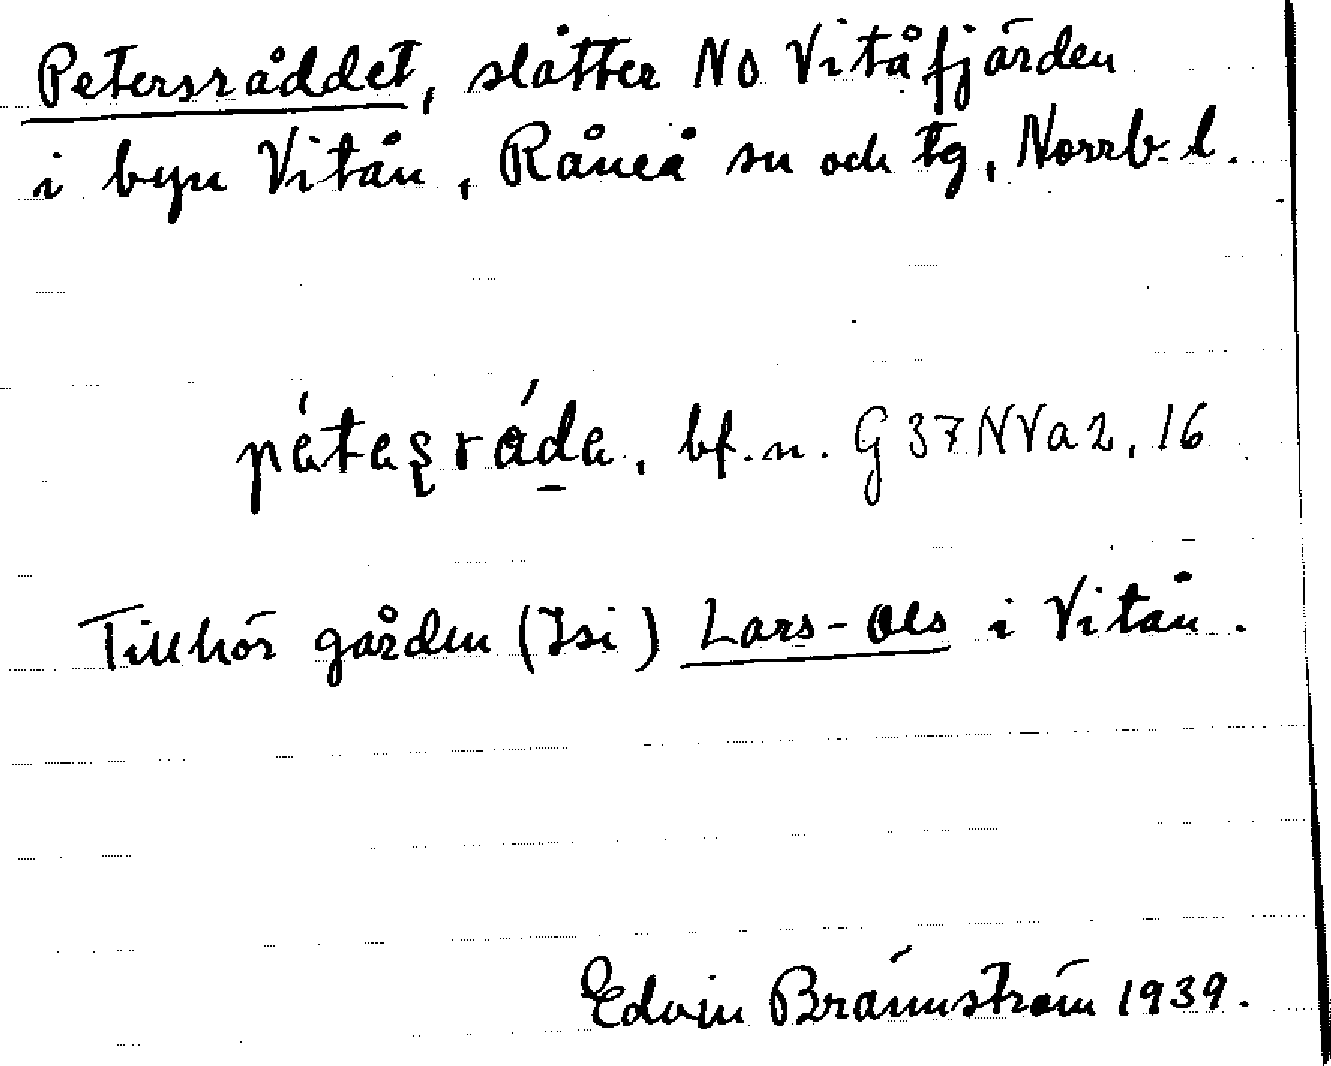 Petersråddet, slåtter NO Vitåfjärden
i byn Vitån, Råneå sn och tg, Norrb. l.
bf. n. G 37 NVa2, 16
Tillhör gården (Isi) Lars-Ols i Vitån.
Edvin Brännström 1939.